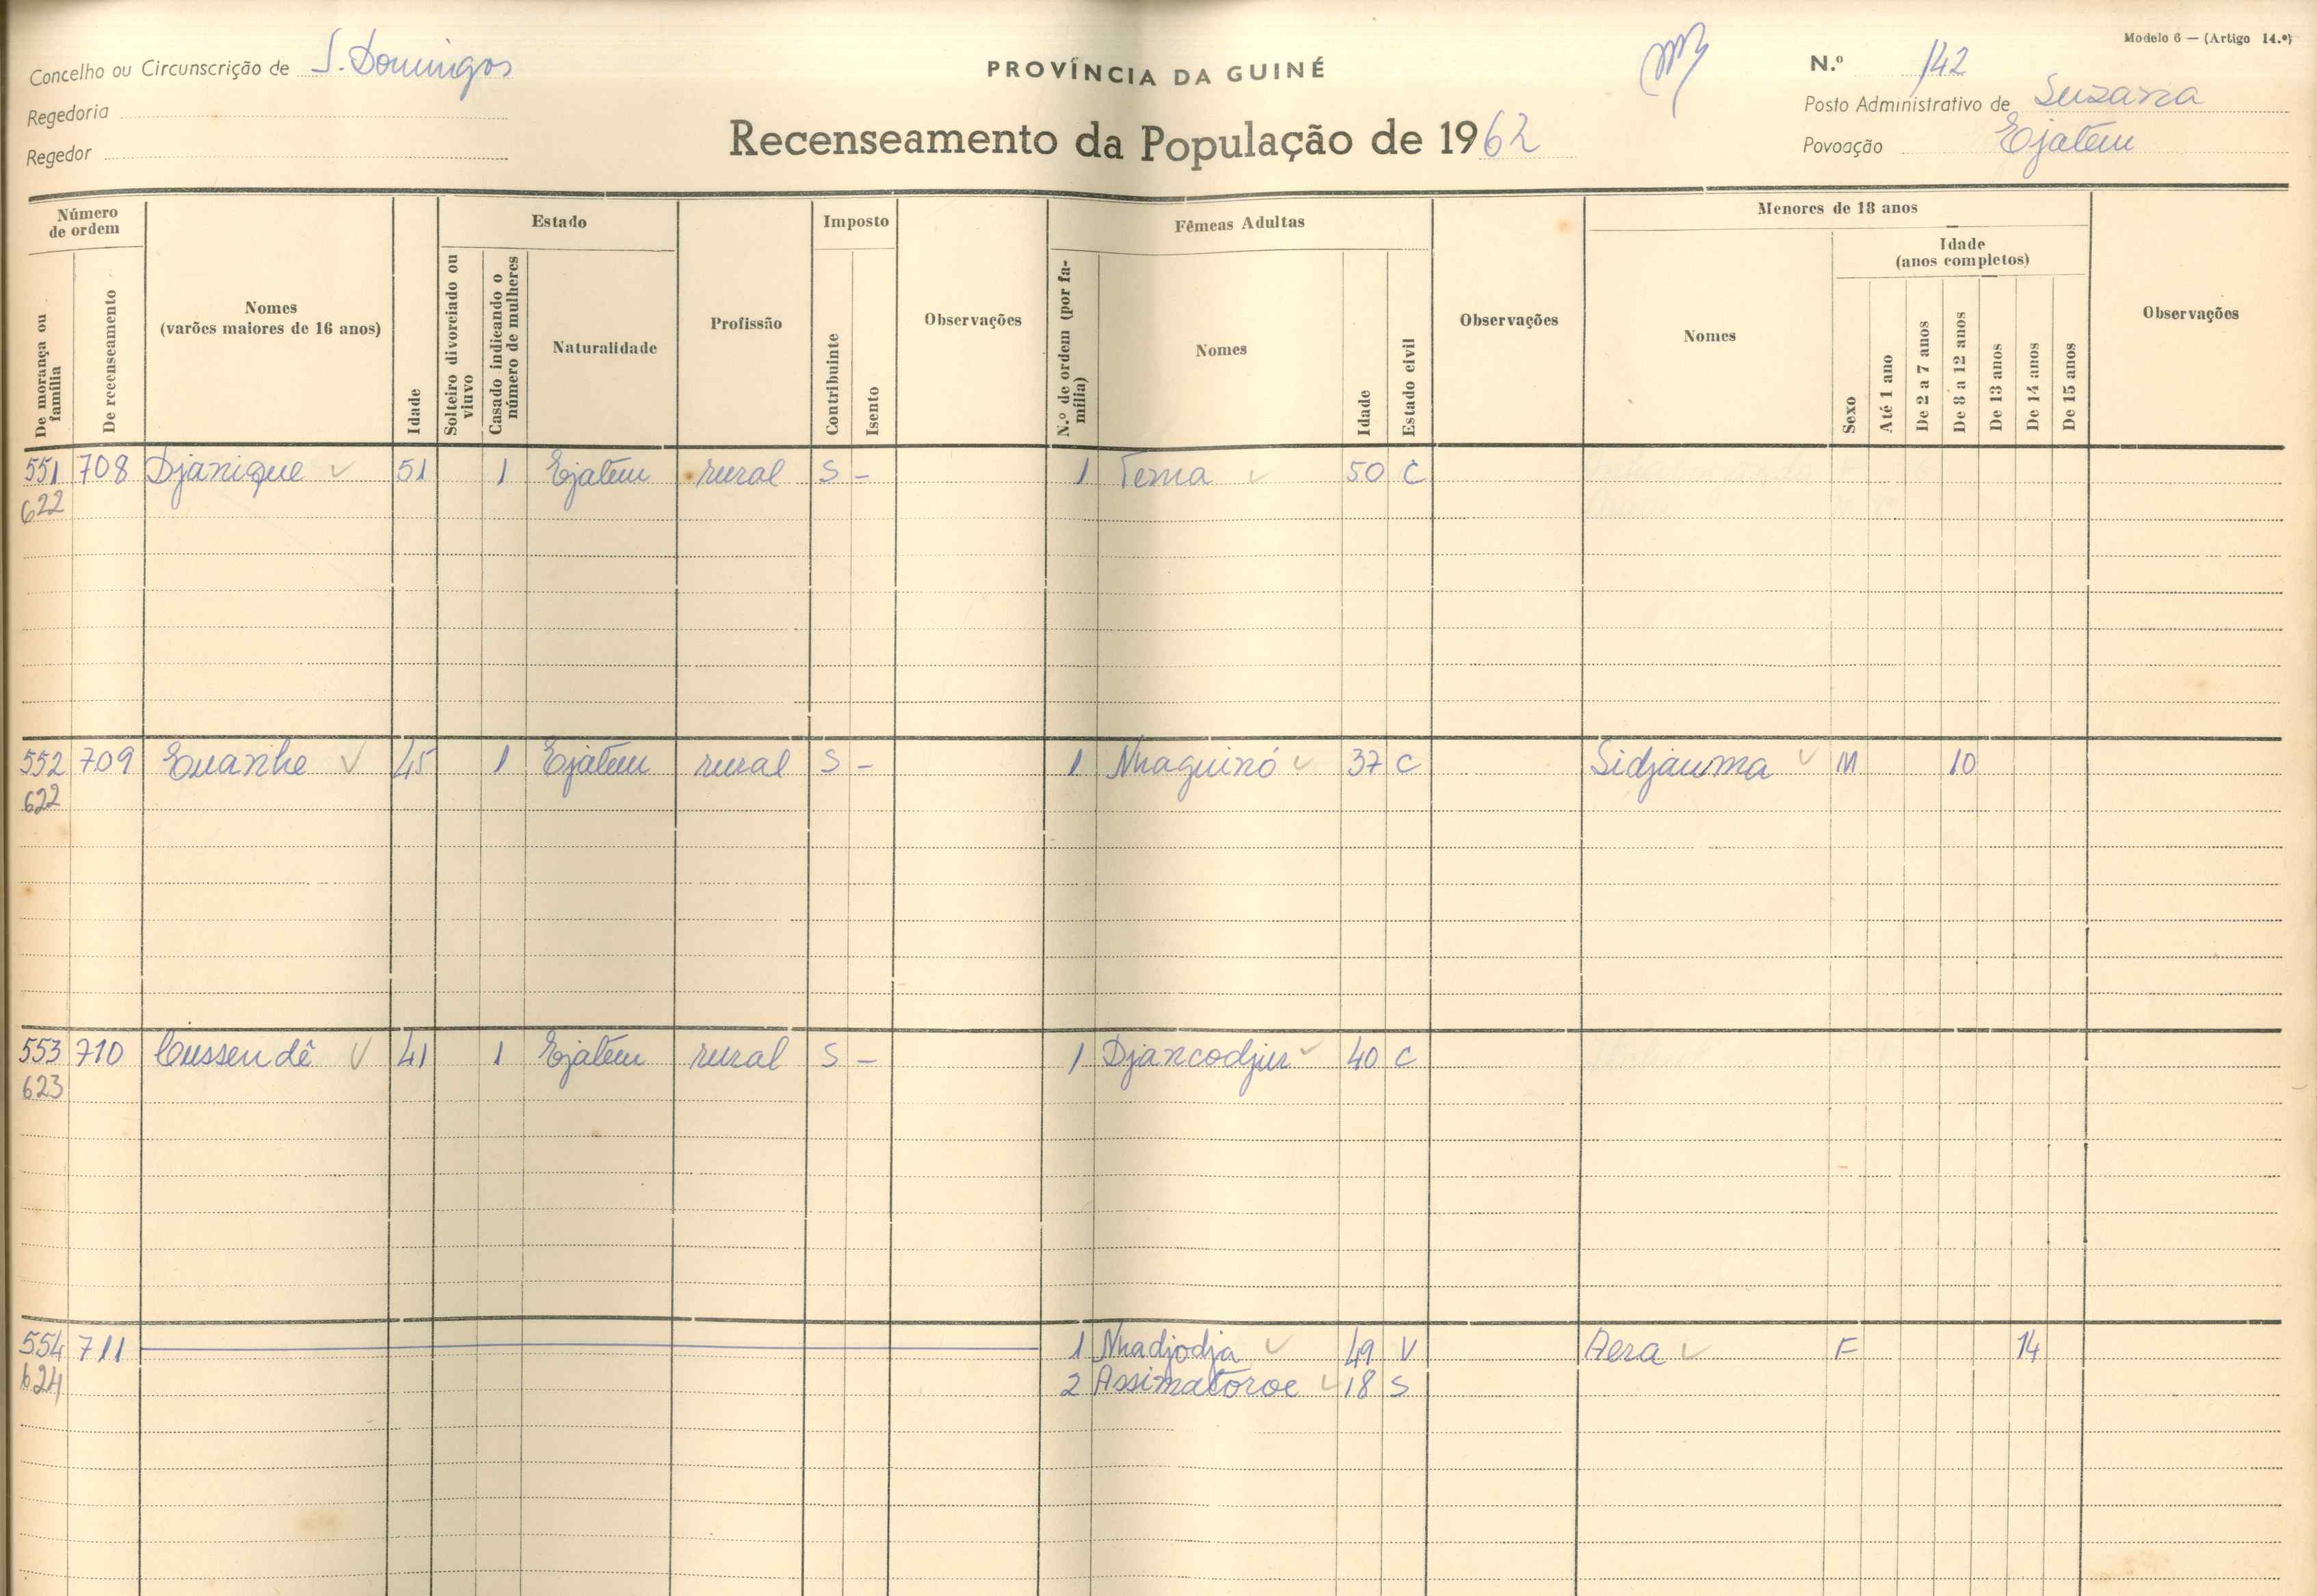 Modelo 6 — (Artigo 14.º)
Concelho ou Circunscrição de S. Domingos
PROVÍNCIA DA GUINÉ
N.º 142
Regedoria
Posto Administrativo de Suzana
Regedor
Recenseamento da População de 1962
Povoação Ejatém
Número de ordem
Estado
Imposto
Fêmeas Adultas
Menores de 18 anos
Idade (anos completos)
De morança ou família
De recenseamento
Nomes (varões maiores de 16 anos)
Idade
Solteiro divorciado ou viuvo
Casado indicando o número de mulheres
Naturalidade
Profissão
Contribuinte
Isento
Observações
N.º de ordem (por família)
Nomes
Idade
Estado civil
Observações
Nomes
Sexo
Até 1 ano
De 2 a 7 anos
De 8 a 12 anos
De 13 anos
De 14 anos
De 15 anos
Observações
551 708 Djanique 51 1 Ejatém rural S - 1 Tema 50 C
622
552 709 Euanhe 45 1 Ejatém rural S - 1 Nhaguinó 37 C Sidjauma M 10
622
553 710 Cussendê 41 1 Ejatém rural S - 1 Djancodjur 40 C
623
554 711 1 Nhadjodja 49 V Aera F 14
624 2 Assimatoroe 18 S